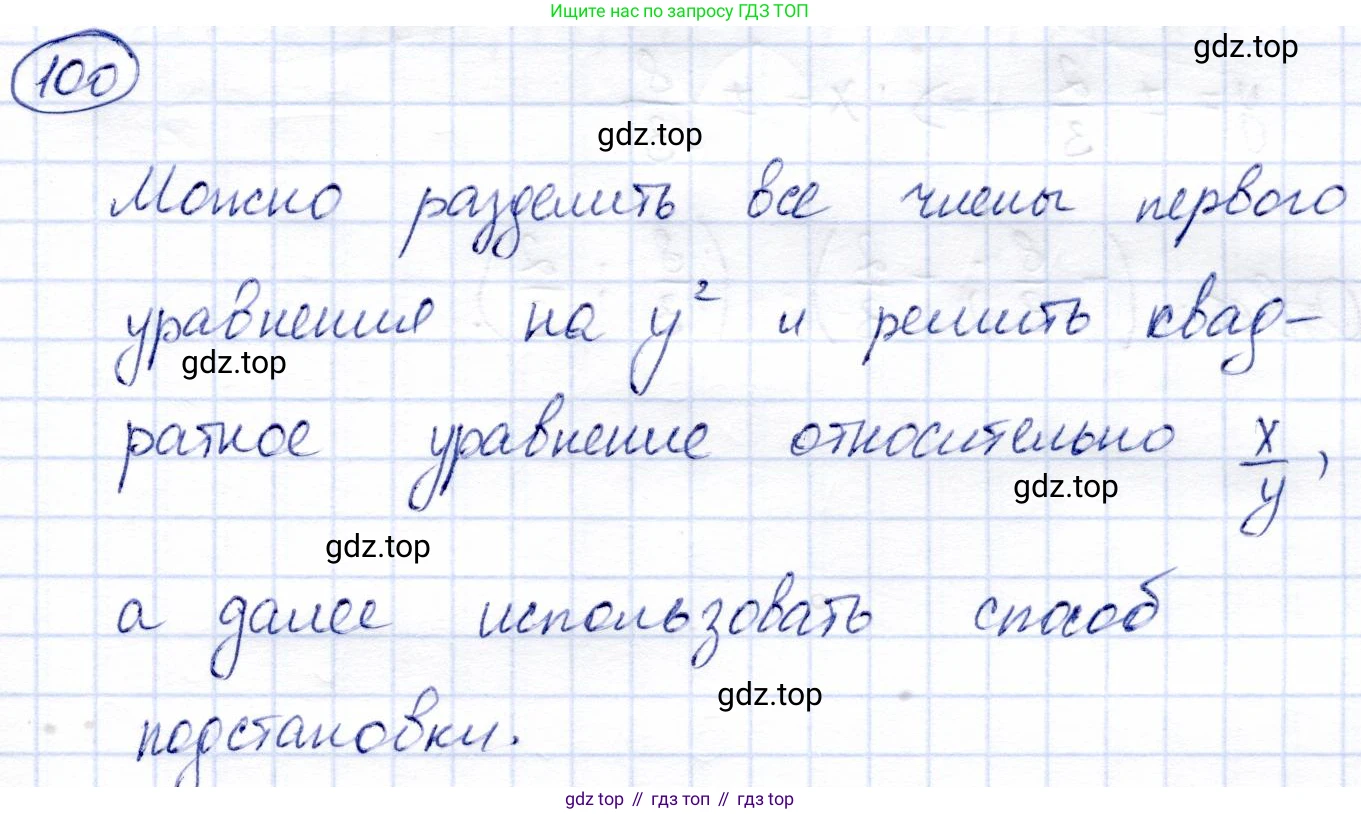 Ищите нас по запросу ГДЗ ТОП
100
gdz.top
gdz.top
Можно разделить все члены первого
уравнения на y² и решить квад-
gdz.top
ратное уравнение относительно x/y,
gdz.top
gdz.top
а далее использовать способ
gdz.top
подстановки.
gdz top // гдз топ // gdz top